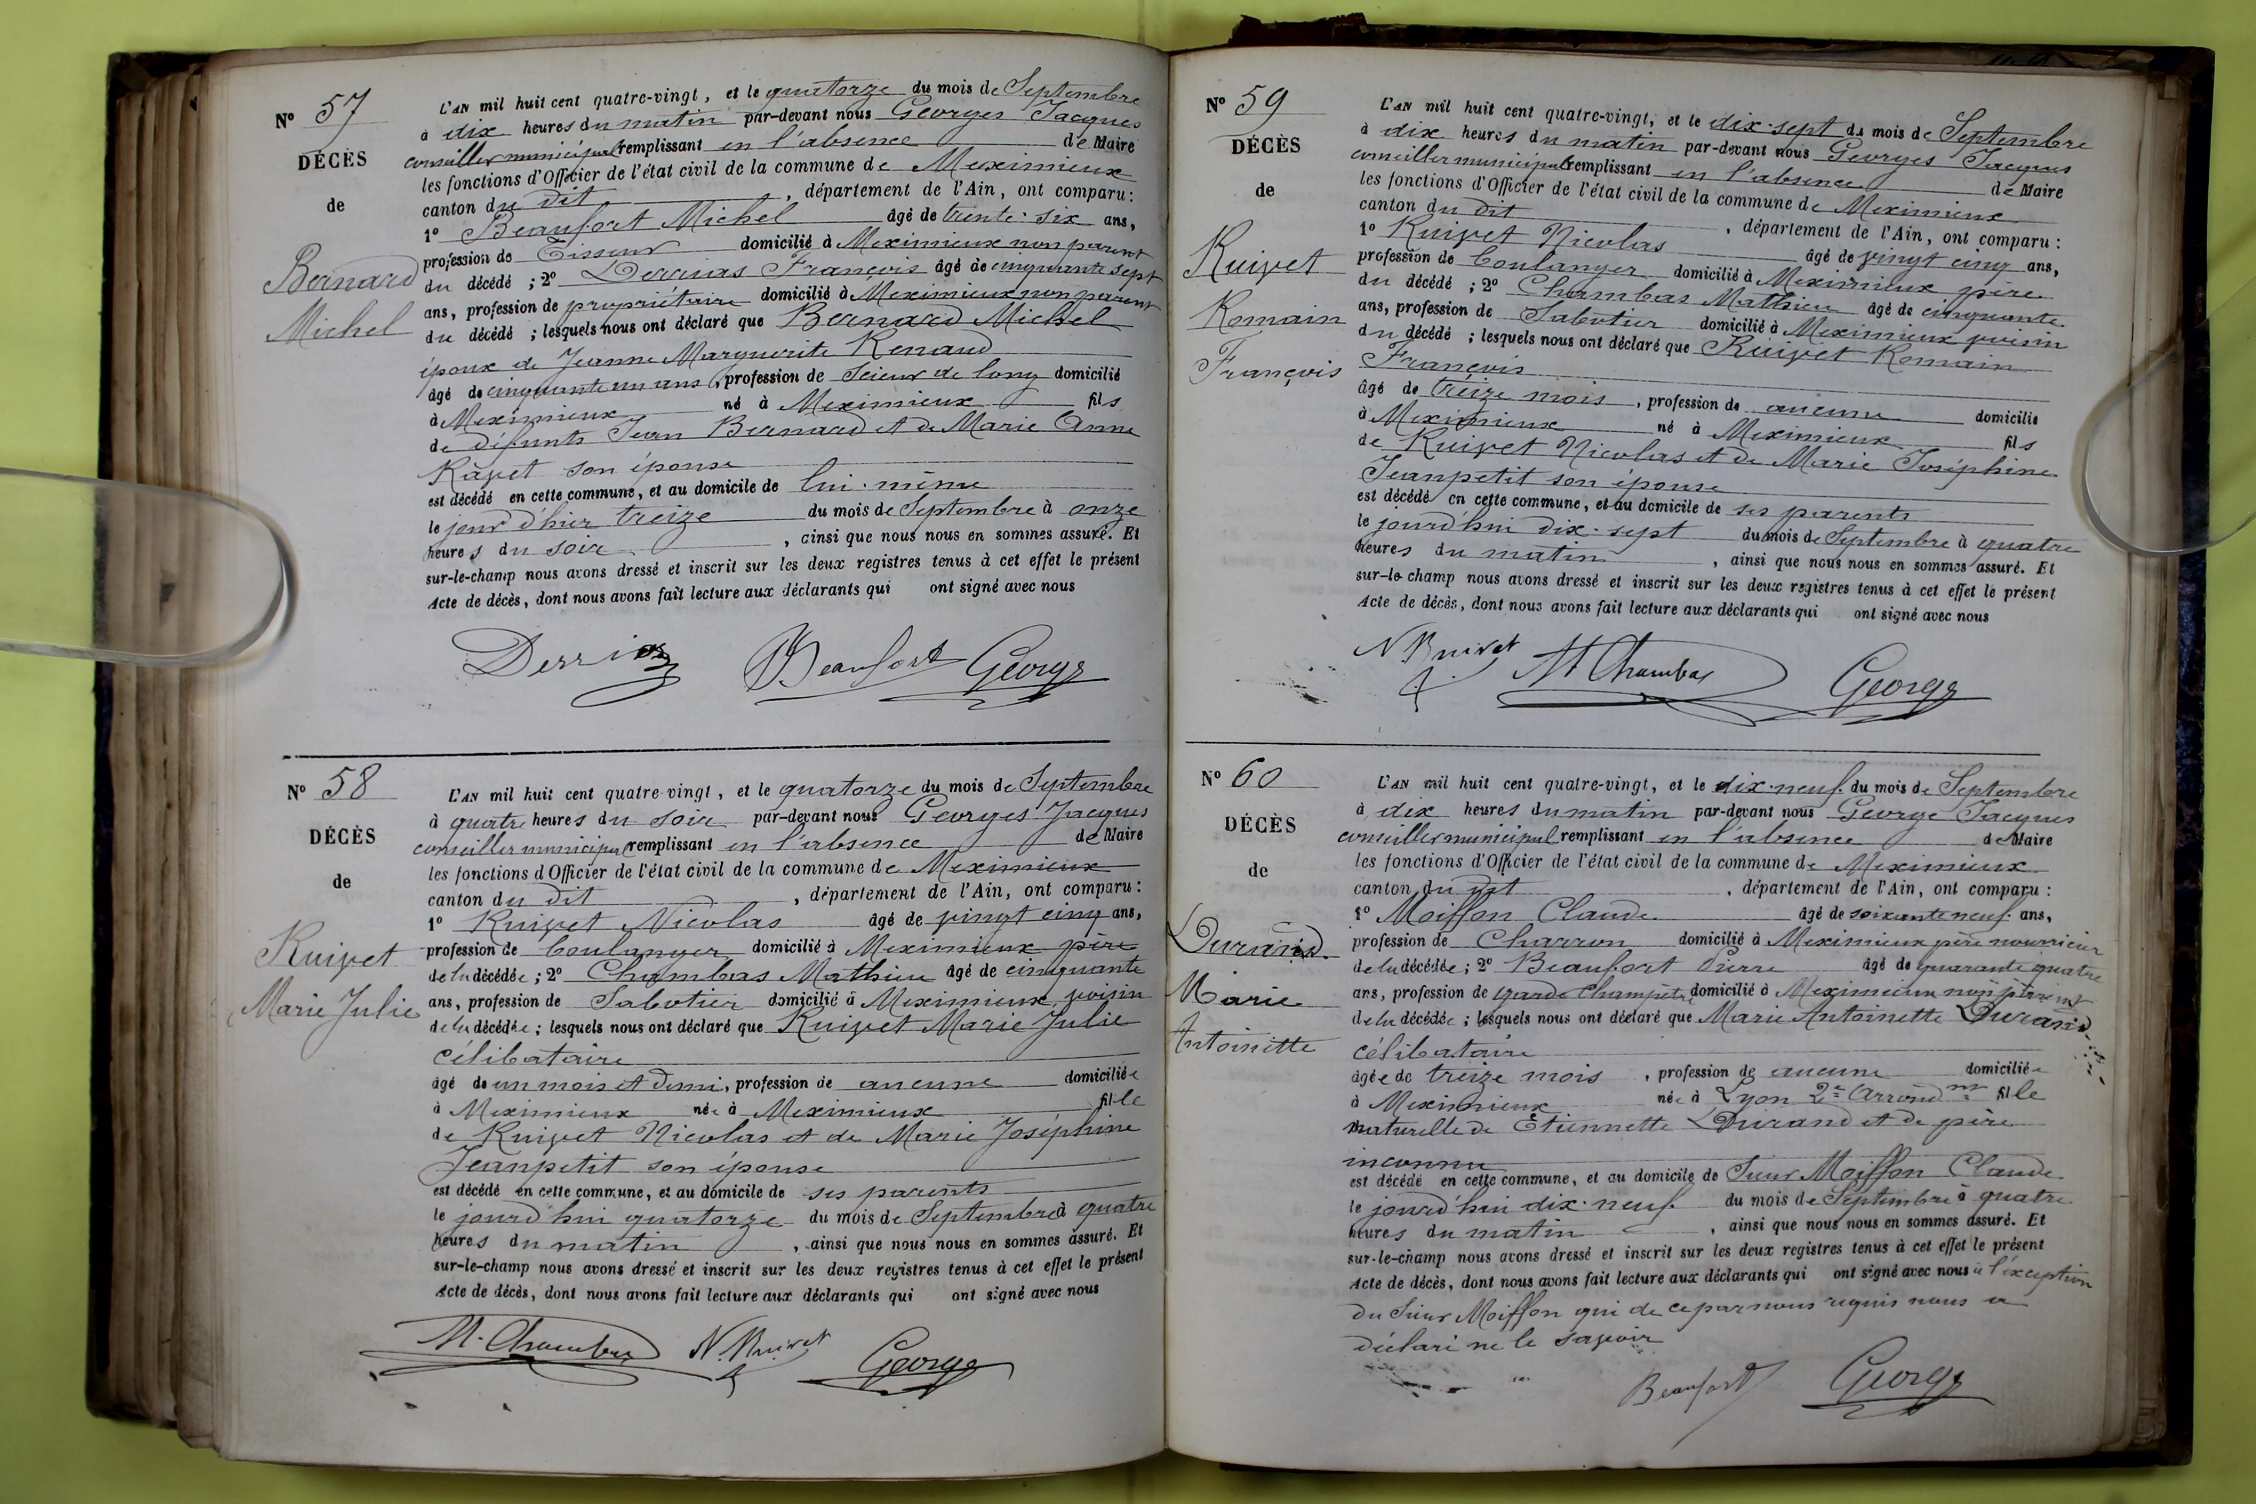 N° 57
DÉCÈS
de
Bernard
Michel
L'AN mil huit cent quatre-vingt, et le quatorze du mois de Septembre
à dix heures du matin par-devant nous Georges Jacques
conseiller municipal remplissant en l'absence de Maire
les fonctions d'Officier de l'état civil de la commune de Meximieux
canton du dit, département de l'Ain, ont comparu:
1° Beaufort Michel âgé de trente-six ans,
profession de Tisseur domicilié à Meximieux non parent
du décédé; 2° François âgé de cinquante sept
ans, profession de propriétaire domicilié à Meximieux non parent
du décédé; lesquels nous ont déclaré que Bernard Michel
époux de Jeanne Marguerite Renaud
âgé de cinquante un ans, profession de Scieur de long domicilié
à Meximieux né à Meximieux fils
de défunts Jean Bernard et de Marie Anne
Ravet son épouse
est décédé en cette commune, et au domicile de lui-même
le jour d'hier treize du mois de Septembre à onze
heures du soir, ainsi que nous nous en sommes assuré. Et
sur-le-champ nous avons dressé et inscrit sur les deux registres tenus à cet effet le présent
Acte de décès, dont nous avons fait lecture aux déclarants qui ont signé avec nous
Beaufort George
N° 58
DÉCÈS
de
Ruivet
Marie Julie
L'AN mil huit cent quatre-vingt, et le quatorze du mois de Septembre
à quatre heures du soir par-devant nous Georges Jacques
conseiller municipal remplissant en l'absence de Maire
les fonctions d'Officier de l'état civil de la commune de Meximieux
canton du dit, département de l'Ain, ont comparu:
1° Ruivet Nicolas âgé de vingt cinq ans,
profession de boulanger domicilié à Meximieux père
de la décédée; 2° Chambas Mathieu âgé de cinquante
ans, profession de Sabotier domicilié à Meximieux voisin
de la décédée; lesquels nous ont déclaré que Ruivet Marie Julie
célibataire
âgé de un mois et demi, profession de aucune domiciliée
à Meximieux née à Meximieux fille
de Ruivet Nicolas et de Marie Joséphine
Jeanpetit son épouse
est décédé en cette commune, et au domicile de ses parents
le jourd'hui quatorze du mois de Septembre à quatre
heures du matin, ainsi que nous nous en sommes assuré. Et
sur-le-champ nous avons dressé et inscrit sur les deux registres tenus à cet effet le présent
Acte de décès, dont nous avons fait lecture aux déclarants qui ont signé avec nous
M. Chambas N. Ruivet George
N° 59
DÉCÈS
de
Ruivet
Romain
François
L'AN mil huit cent quatre-vingt, et le dix-sept du mois de Septembre
à dix heures du matin par-devant nous Georges Jacques
conseiller municipal remplissant en l'absence de Maire
les fonctions d'Officier de l'état civil de la commune de Meximieux
canton du dit, département de l'Ain, ont comparu:
1° Ruivet Nicolas âgé de vingt cinq ans,
profession de boulanger domicilié à Meximieux père
du décédé; 2° Chambas Mathieu âgé de cinquante
ans, profession de Sabotier domicilié à Meximieux voisin
du décédé; lesquels nous ont déclaré que Ruivet Romain
François
âgé de treize mois, profession de aucune domicilié
à Meximieux né à Meximieux fils
de Ruivet Nicolas et de Marie Joséphine
Jeanpetit son épouse
est décédé en cette commune, et au domicile de ses parents
le jourd'hui dix-sept du mois de Septembre à quatre
heures du matin, ainsi que nous nous en sommes assuré. Et
sur-le-champ nous avons dressé et inscrit sur les deux registres tenus à cet effet le présent
Acte de décès, dont nous avons fait lecture aux déclarants qui ont signé avec nous
N Ruivet M Chambas George
N° 60
DÉCÈS
de
Durand
Marie
Antoinette
L'AN mil huit cent quatre-vingt, et le dix-neuf du mois de Septembre
à dix heures du matin par-devant nous George Jacques
conseiller municipal remplissant en l'absence de Maire
les fonctions d'Officier de l'état civil de la commune de Meximieux
canton du dit, département de l'Ain, ont comparu:
1° Moiffon Claude âgé de soixante neuf ans,
profession de Charron domicilié à Meximieux père nourricier
de la décédée; 2° Beaufort Pierre âgé de quarante quatre
ans, profession de garde champêtre domicilié à Meximieux non parent
de la décédée; lesquels nous ont déclaré que Marie Antoinette Durand
célibataire
âgée de treize mois, profession de aucune domiciliée
à Meximieux née à Lyon 2e Arrondmt fille
naturelle de Etiennette Durand et de père
inconnu
est décédé en cette commune, et au domicile de Sieur Moiffon Claude
le jourd'hui dix-neuf du mois de Septembre à quatre
heures du matin, ainsi que nous nous en sommes assuré. Et
sur-le-champ nous avons dressé et inscrit sur les deux registres tenus à cet effet le présent
Acte de décès, dont nous avons fait lecture aux déclarants qui ont signé avec nous à l'exception
du Sieur Moiffon qui de ce par nous requis nous a
déclaré ne le savoir
Beaufort George